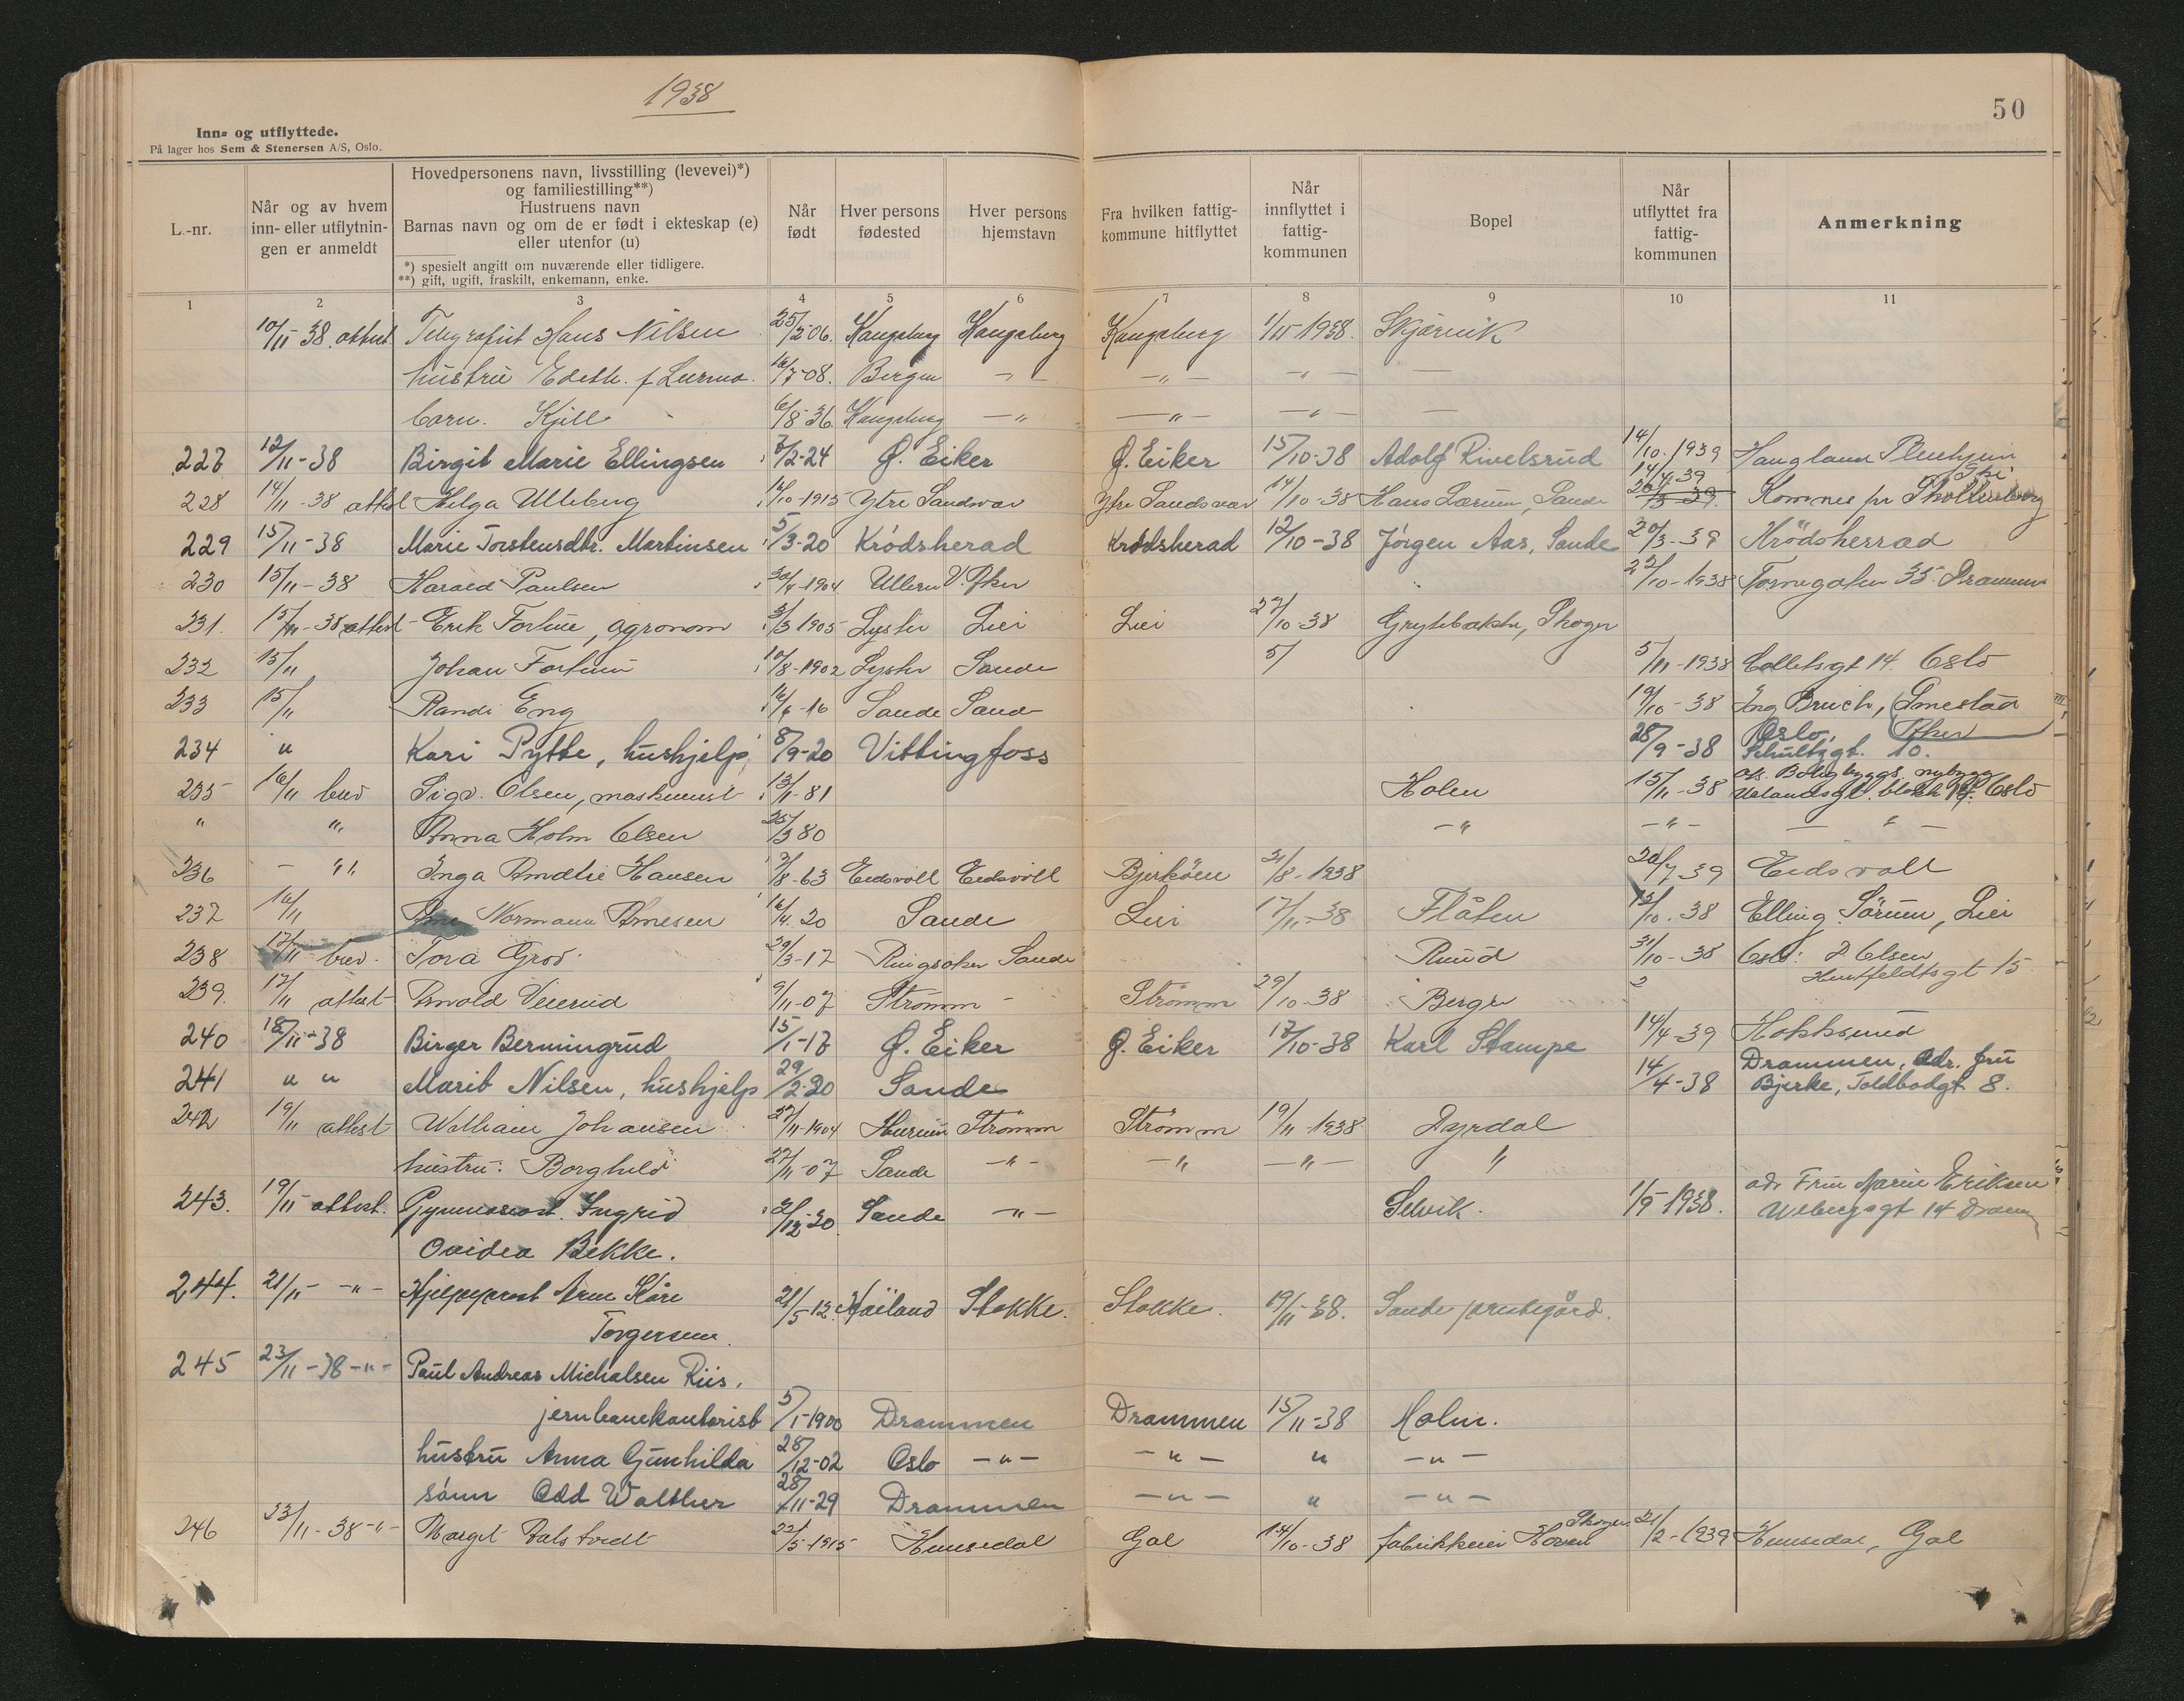 1938
50
Inn- og utflyttede.
På lager hos Sem & Stenersen A/S, Oslo.
L.-nr.
Når og av hvem inn- eller utflytningen er anmeldt
Hovedpersonens navn, livsstilling (levevei)*) og familiestilling**)
Hustruens navn
Barnas navn og om de er født i ekteskap (e) eller utenfor (u)
*) spesielt angitt om nuværende eller tidligere.
**) gift, ugift, fraskilt, enkemann, enke.
Når født
Hver persons fødested
Hver persons hjemstavn
Fra hvilken fattigkommune hitflyttet
Når innflyttet i fattigkommunen
Bopel
Når utflyttet fra fattigkommunen
Anmerkning
1 2 3 4 5 6 7 8 9 10 11
10/11-38 attest Telegrafist Hans Nilsen 25/2-06 Kongsberg Kongsberg Kongsberg 1/11-1938. Skjærvik
hustru Edith f. 16/7-08. Bergen -"- -"- -"- —
barn. Kjell 6/8-36 Kongsberg -"- -"- -"- —
227 12/11-38 Birgit Marie Ellingsen 7/2-24 Ø. Eiker Ø. Eiker 15/10-38 Adolf Rivelsrud 14/10-1939
228 14/11-38 attest Helga Ulleberg 16/10-1915 Ytre Sandsvær Ytre Sandsvær 14/10-38 Hans Sørum, Sande 14/4-39 Komnes pr Skollenborg
229 15/11-38 Marie Torstensdtr. Martinsen 5/3-20 Krödsherad Krödsherad 12/10-38 Jörgen Aas, Sande 20/3-39 Krödsherrad
230 15/11-38 Harald Paulsen 30/4-1904 Ullern V. Aker 22/10-1938 Tornegaten 35 Drammen
231. 15/11-38 attest Erik Fortun, agronom 3/3-1905 Lyster Lier Lier 27/10-38 Grytebakke, Skoger
232 15/11 Johan Fortun 10/8-1902 Lyster Sande 5/ 5/11-1938 Colletsgt 14. Oslo
233 15/11 Randi Eng 16/6-16 Sande Sande 19/10-38 Ing Bruch, Smestad Aker
234 " Kari Pytte, hushjelp, 8/9-20 Vittingfoss 28/9-38 Oslo, Schultzgt. 10.
235 16/11 brev Sigv. Olsen, maskinist 13/11-81 Holm 15/11-38 Uelandsgt. Oslo
" " Anna Holm Olsen 25/3 80 -"- -"- — " —
236 - " Inga Amalie Hansen 9/8-63 Eidsvoll Eidsvoll Bjerköen 31/8-1938 20/7-39 Eidsvoll
237 16/11 Normann Arnesen 16/4-20 Sande Lier 17/11-38 Flåten 12/10-38 Elling Sörum, Lier
238 17/11 brev. Tora Grov 29/3-17 Ringsaker Sande Ruud 31/10-38 Oslo: Olsen Huitfeldtsgt 15
239. 17/11 attest Arnold Veierud 9/11-07 Strömm - Strömm 29/10-38 Berger
240 18/11-38 Birger Bermingrud 15/1-17 Ø. Eiker Ø. Eiker 17/10-38 Karl Stampe 14/4-39 Hokksund
241 " " Marit Nilsen, hushjelp 29/2-20 Sande 14/4-38 Drammen, adr. fru Bjerke, Toldbodgt 8.
242 19/11 attest William Johansen 27/11-1904 Hurum Strömm Strömm 19/11-1938 Dyrdal
hustru: Borghild 27/11-07 Sande -"- -"- -"- "
243. 19/11 attest. Gymnasiast. Ingrid 2/12-20 Sande -"- Selvik. 1/9-1938. adr Fru Marie Eriksen
Ovidea Bekke. Webergsgt 14 Dramm
244. 21/11- -"- Hjelpeprest Arne Kåre 21/5-12. Stokke. Stokke. 19/11-38. Sande prestegård.
Torgersen.
245 23/11-38-"- Paul Andreas Michalsen Riis,
jernbanekontorist 5/1-1900 Drammen Drammen 15/11-38 Holm.
hustru Anna Gunhilda 28/12-02 Oslo -"- -"- " -"-
sönn Odd Walther 28/11-29 Drammen -"- " -"-
246 23/11-38-"- Margit 22/5-1915 Hemsedal Gol 14/10-38 fabrikkeier Hoven Skoger 21/2-1939 Hemsedal, Gol